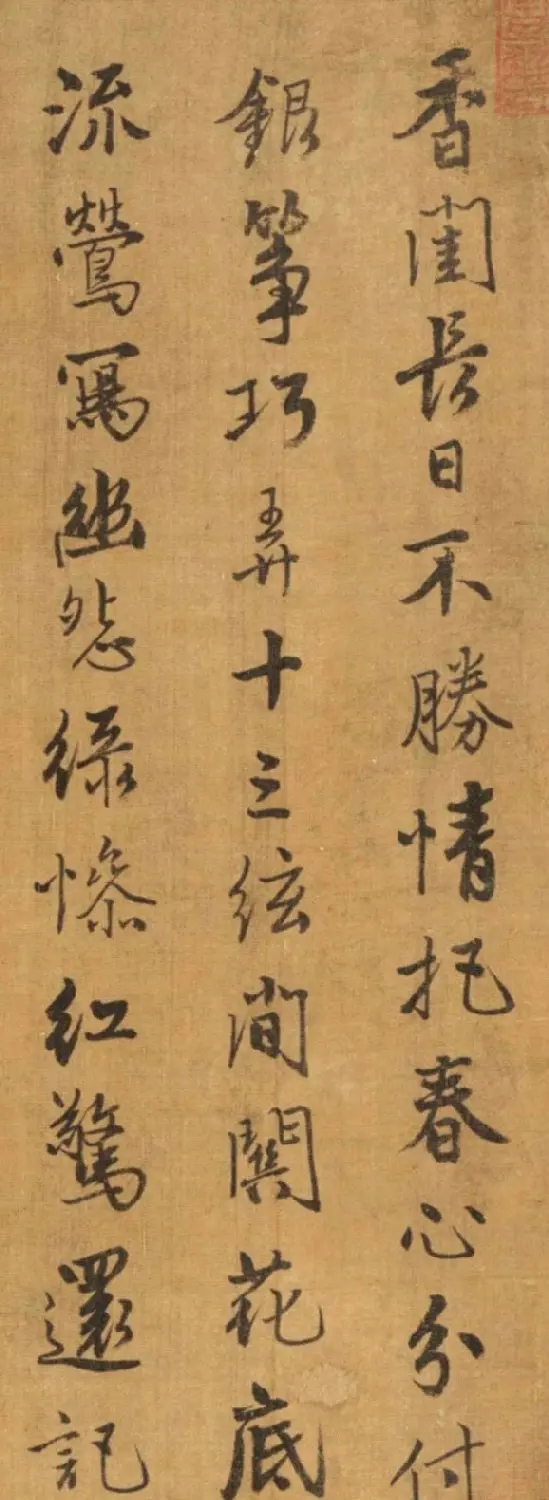 香閨長日不勝情把春心分付
銀箏巧弄十三絃間關花底
流鶯寫幽怨綠慘紅驚還記